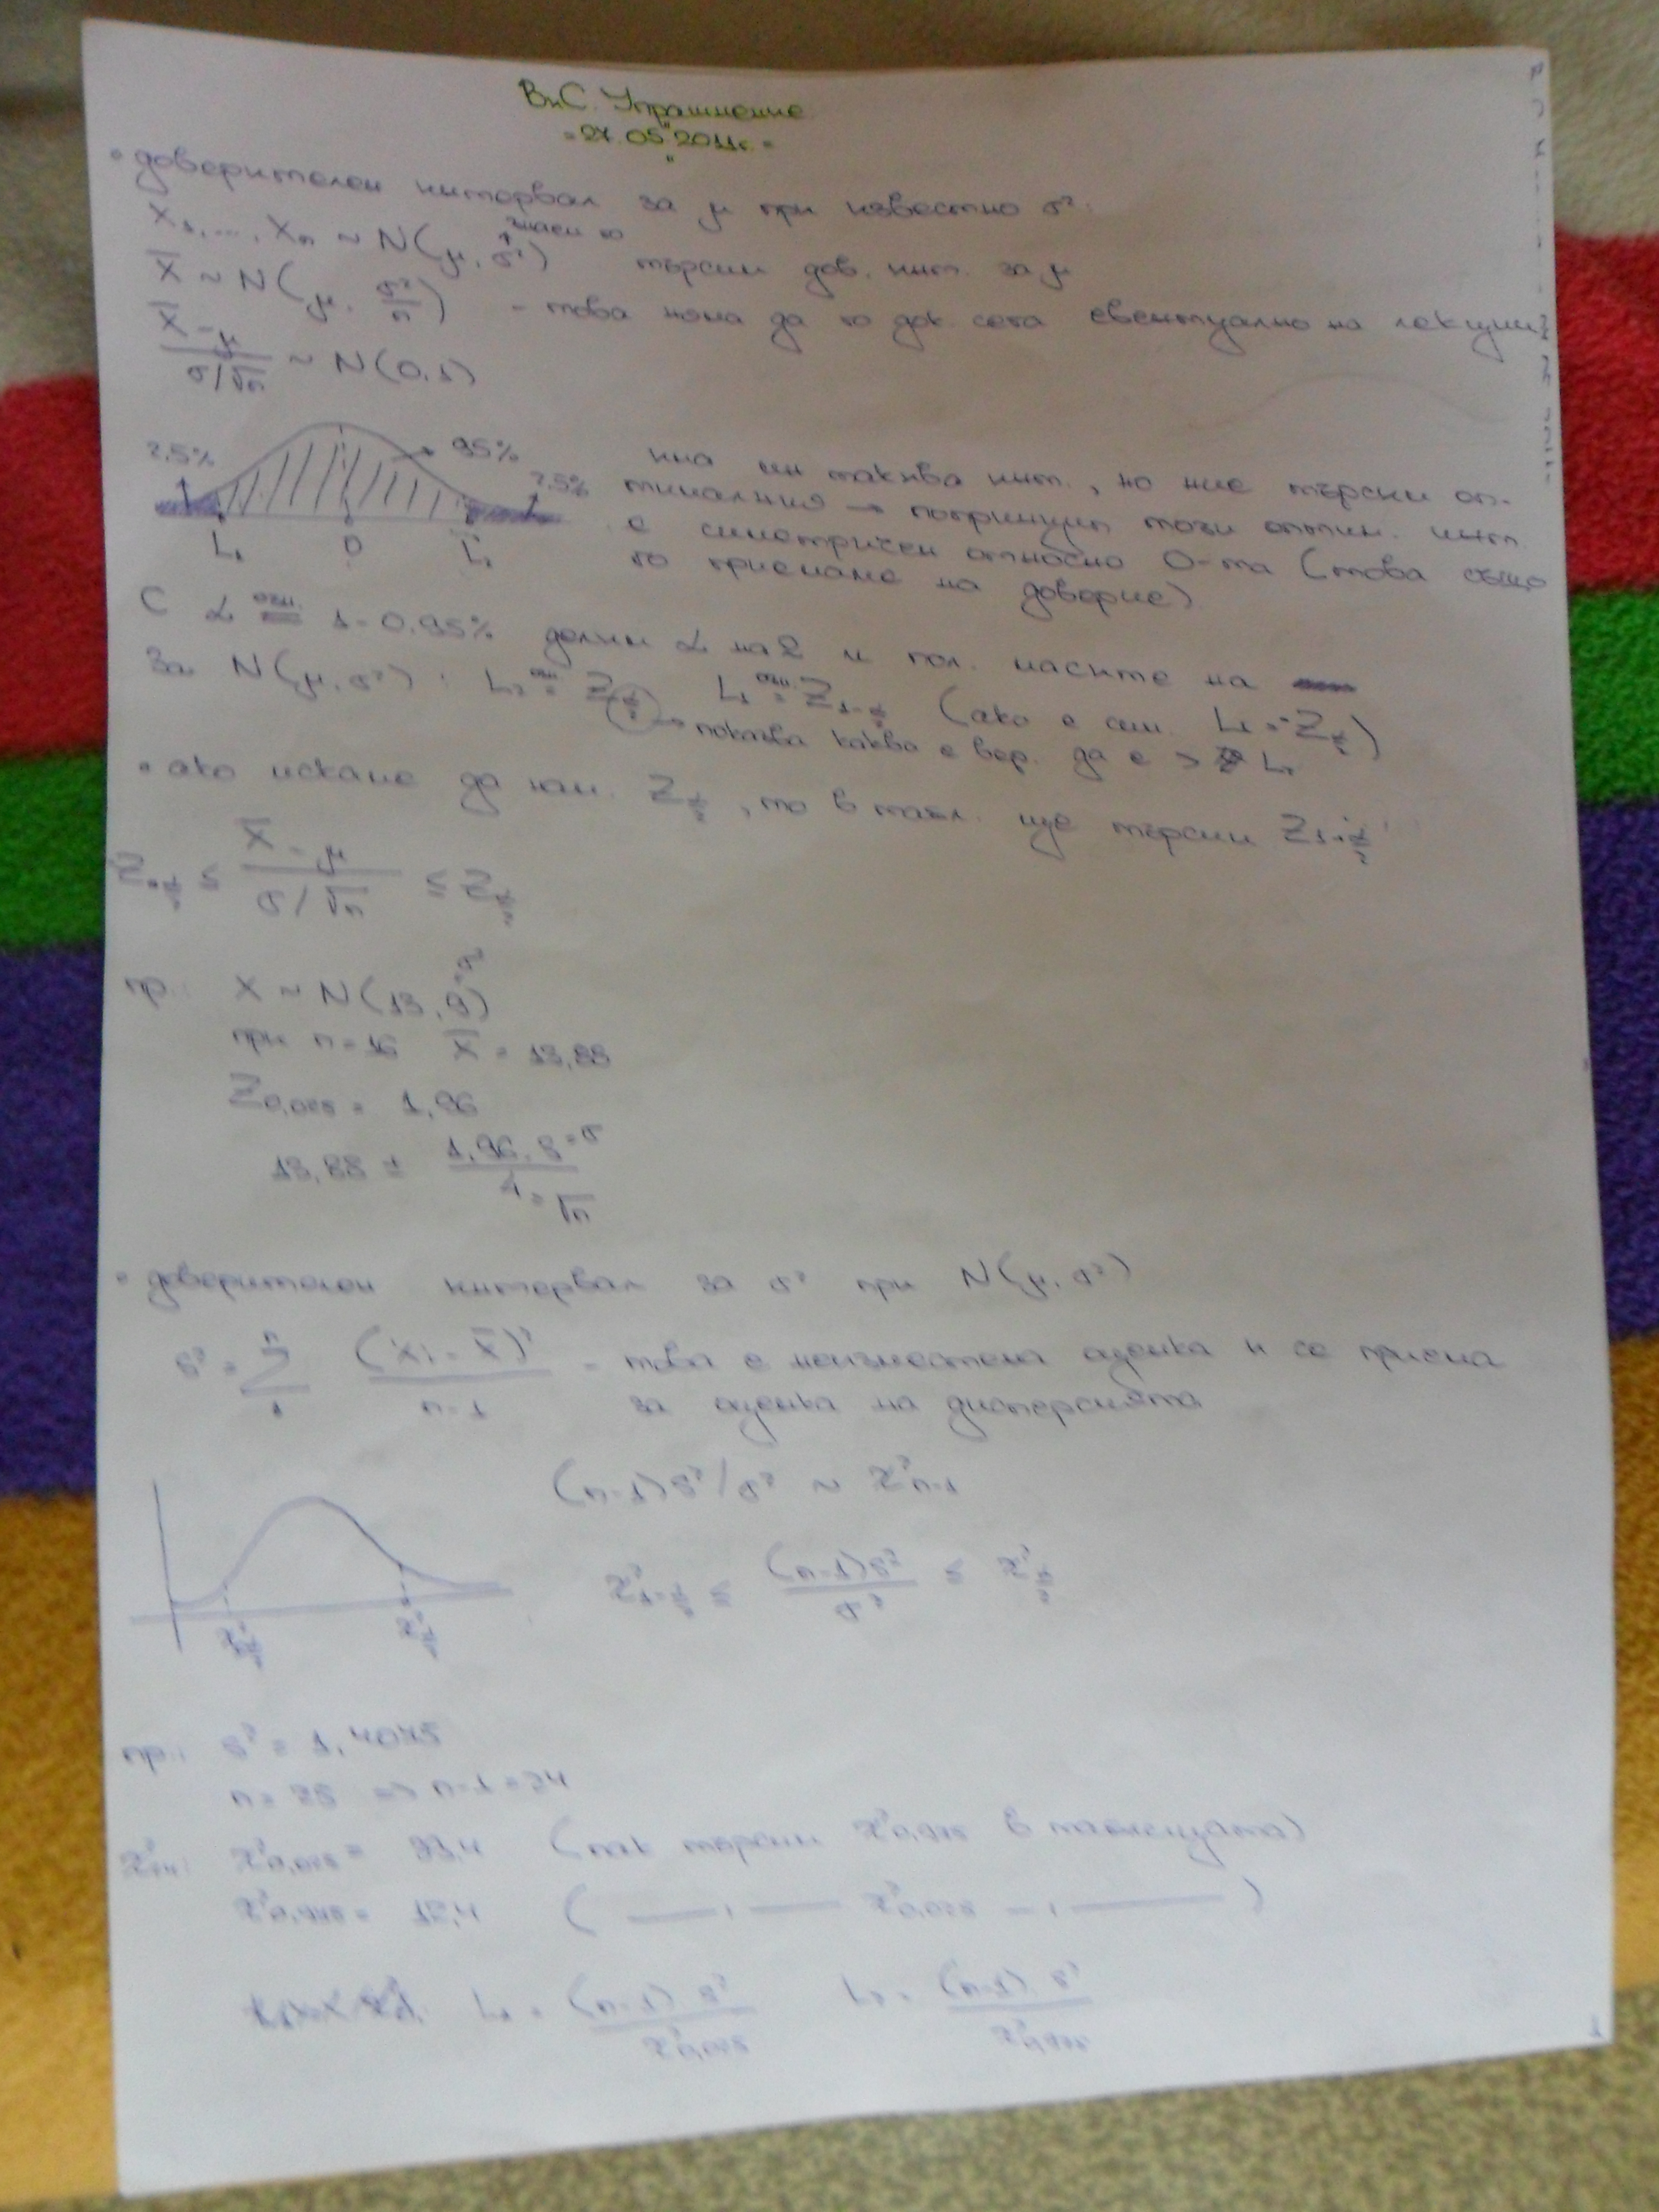 ВиС. Упражнение
27.05.2011г.
• доверителен интервал за μ при известно σ²
X₁, ..., Xₙ ~ N(μ, σ²) търсим дов. инт. за μ
знаем го
X̄ ~ N(μ, σ²/n) - това няма да го док. сега евентуално на лекции
(X̄ - μ)/(σ/√n) ~ N(0,1)
2,5% 95% 2,5%
L₁ 0 L₂
има мн. такива инт., но ние търсим оп-
тималния → попринцип този оптим. инт.
е симетричен относно 0-та (това също
го приемаме на доверие)
С α озн. = 1-0,95% делим α на 2 и пол. масите на
За N(μ, σ²): L₂ озн. = Z_{α/2} L₁ озн. = Z_{1-α/2} (ако е сим. L₁ = -Z_{α/2})
→ показва каква е вер. да е > L₂
• ако искаме да нам. Z_{α/2}, то в табл. ще търсим Z_{1-α/2}
≤ (X̄ - μ)/(σ/√n) ≤ Z_{α/2}
пр.: X ~ N(13, 9)
σ²
при n=16 X̄ = 13,88
Z_{0,025} = 1,96
13,88 ± (1,96 . 3 = σ)/(4 = √n)
• доверителен интервал за σ² при N(μ, σ²)
s² = Σ₁ⁿ (Xᵢ - X̄)²/(n-1) - това е неизместена оценка и се приема
за оценка на дисперсията
(n-1)s²/σ² ~ χ²ₙ₋₁
χ²_{1-α/2} ≤ (n-1)s²/σ² ≤ χ²_{α/2}
χ²_{α/2}
пр.: s² = 1,4075
n = 25 => n-1 = 24
χ²₂₄: χ²_{0,025} = 39,4 (пак търсим χ²_{0,975} в таблицата)
χ²_{0,975} = 12,4 ( —— ıı —— χ²_{0,025} — ıı —— )
L₁ = (n-1) s²/χ²_{0,025} L₂ = (n-1) s²/χ²_{0,975}
1